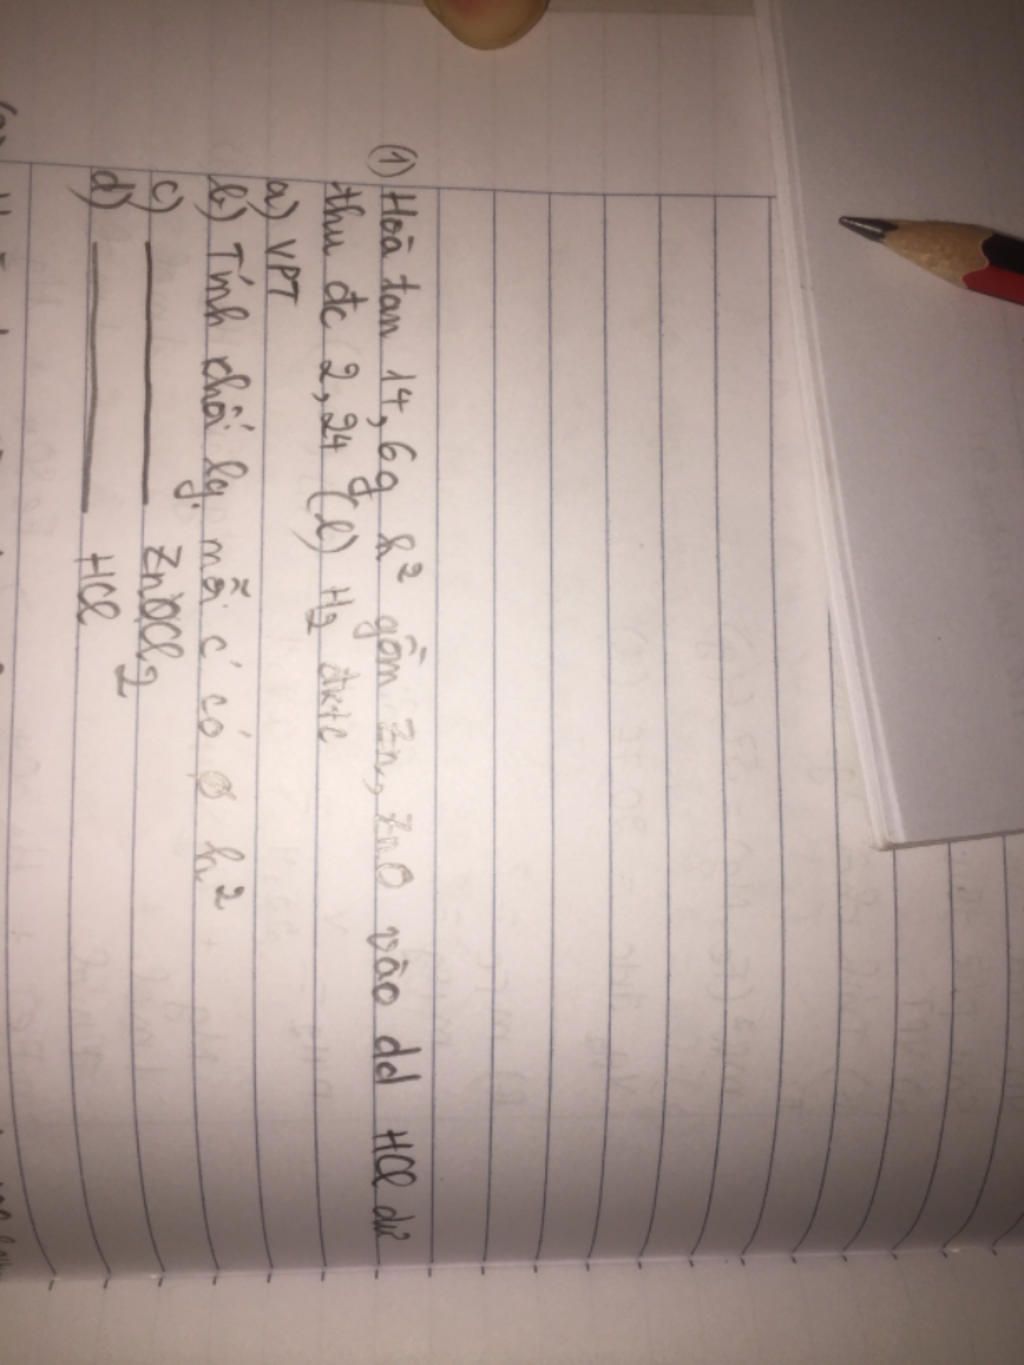 (1) Hoà tan 14,6g h² gồm Zn, ZnO vào dd HCl dư
thu đc 2,24 (l) H2 đktc
a) VPT
b) Tính khối lg. mỗi c' có ở h²
c) ZnCl2
d) HCl